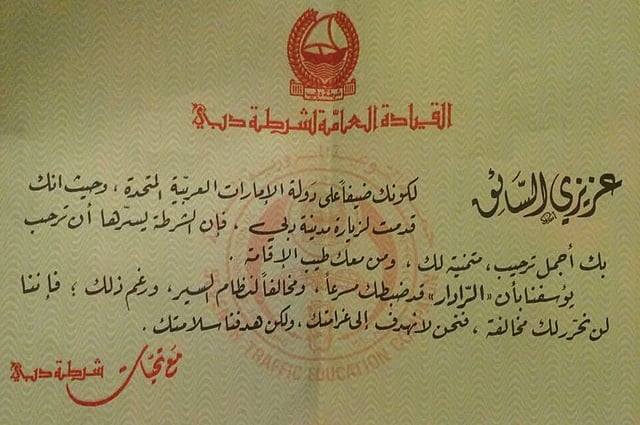 شرطة دبي
القيادة العامّة لشرطة دبي
عزيزي السّائق
لكونك ضيفاً على دولة الإمارات العربيّة المتحدة ، وحيث انك
قدمت لزيارة مدينة دبي ، فإن الشرطة يسرّها أن ترحب
بك أجمل ترحيب ، متمنية لك ، ومن معك طيب الاقامة .
يؤسفنا بأن «الرّادار» قد ضبطك مسرعاً ، ومخالفاً لنظام السير ، ورغم ذلك ؛ فإننا
لن نحرّر لك مخالفة ، فنحن لا نهدف إلى غرامتك ، ولكن هدفنا سلامتك .
مع تحيّات
شرطة دبي
TRAFFIC EDUCATION